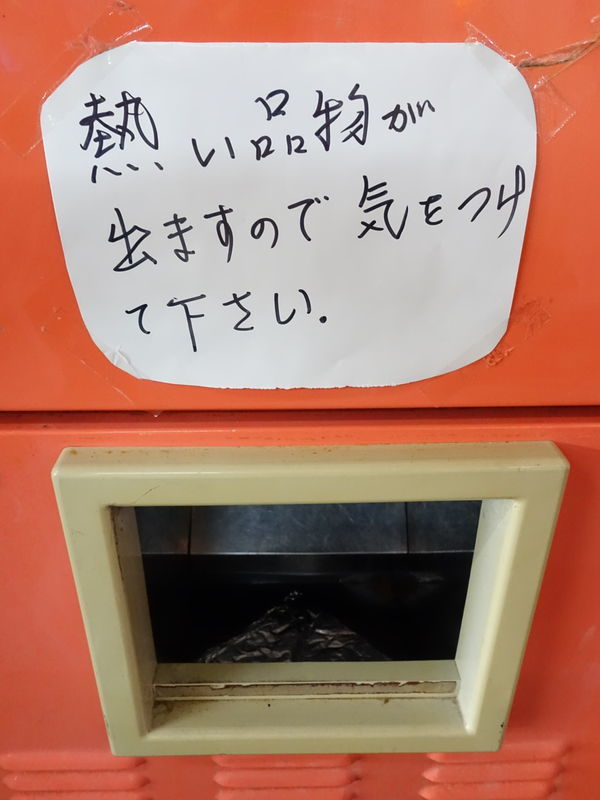 熱い品物が
出ますので気をつけ
て下さい.